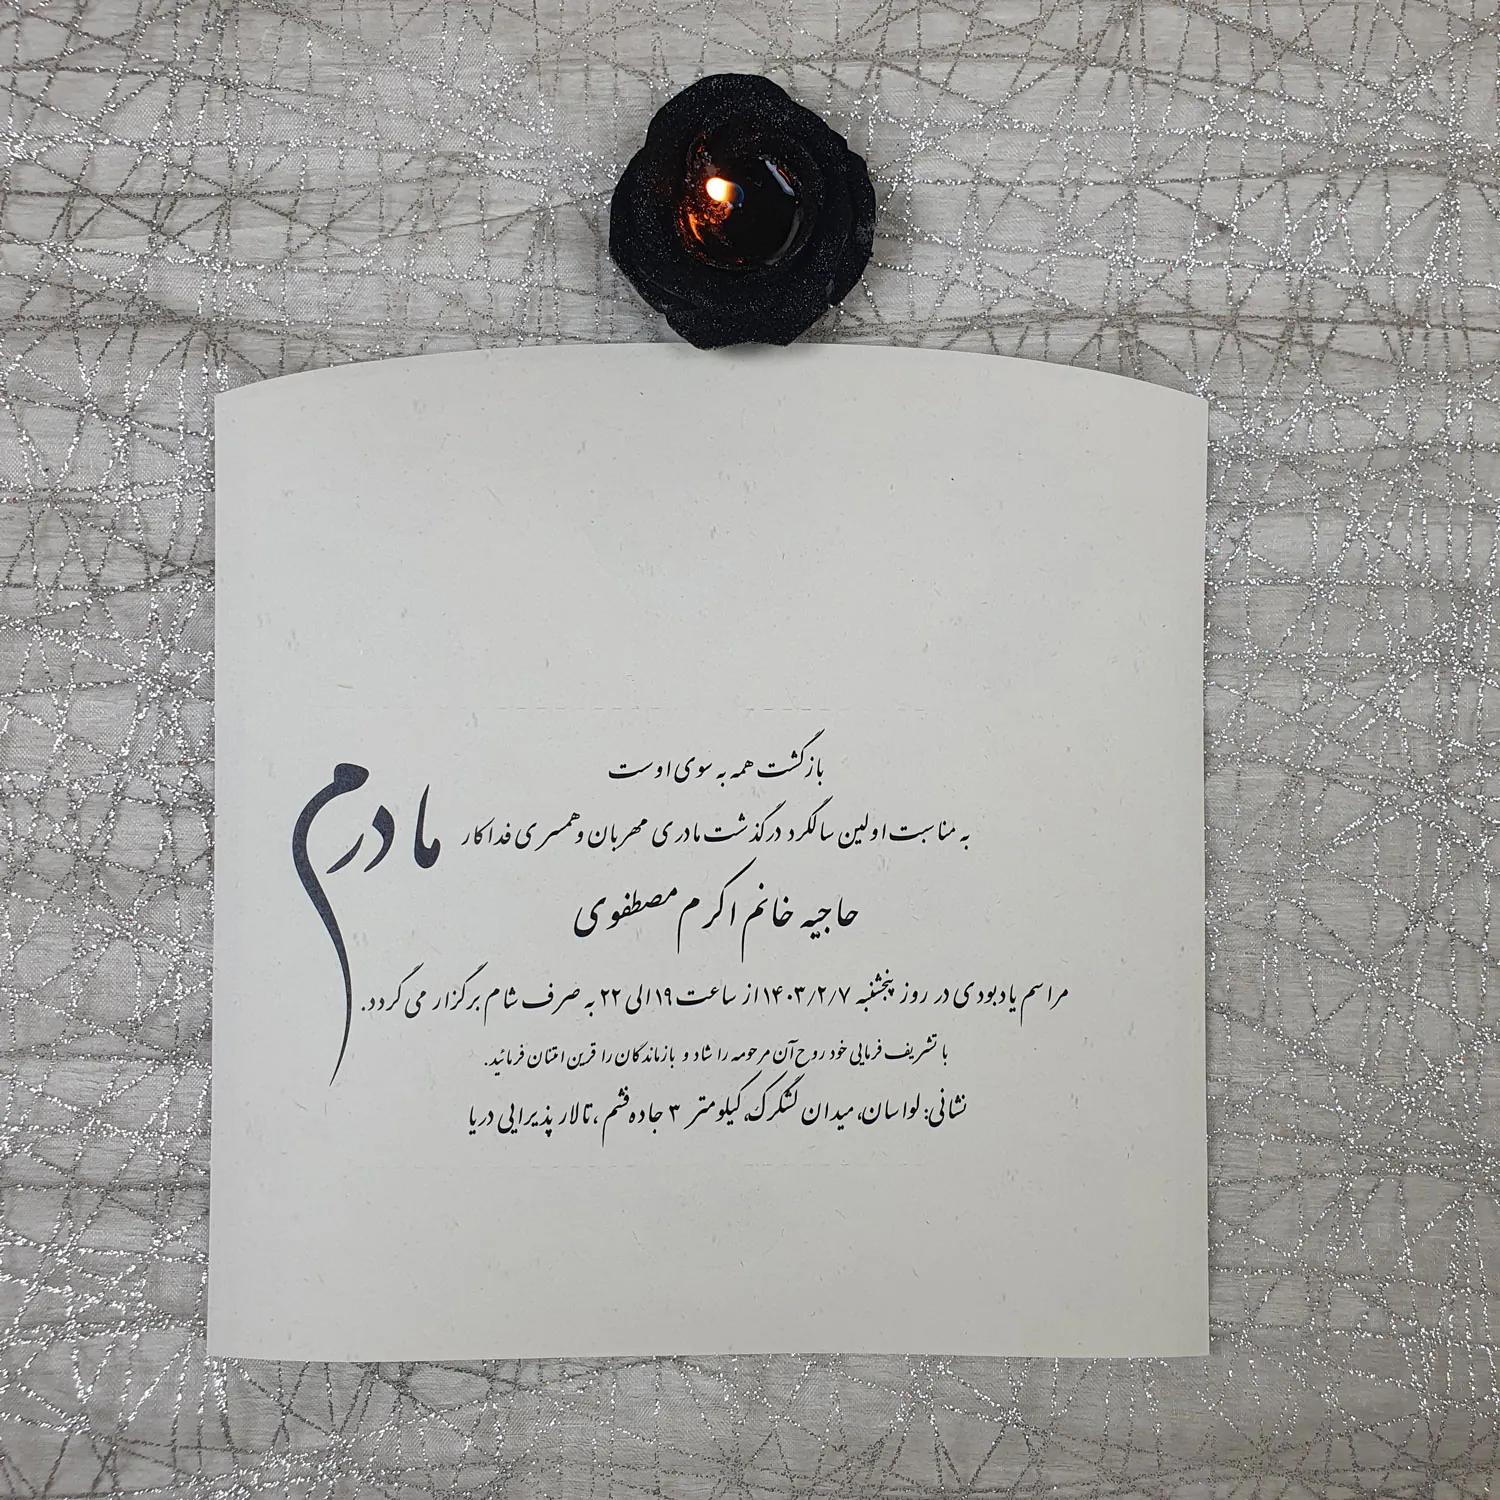 بازگشت همه به سوی اوست
مادرم
به مناسبت اولین سالگرد درگذشت مادری مهربان و همسری فداکار
حاجیه خانم اکرم مصطفوی
مراسم یادبودی در روز پنجشنبه ۱۴۰۳/۲/۷ از ساعت ۱۹ الی ۲۲ به صرف شام برگزار می گردد.
با تشریف فرمایی خود روح آن مرحومه را شاد و بازماندگان را قرین امتنان فرمائید.
نشانی: لواسان، میدان لشگرک، کیلومتر ۳ جاده فشم، تالار پذیرایی دریا